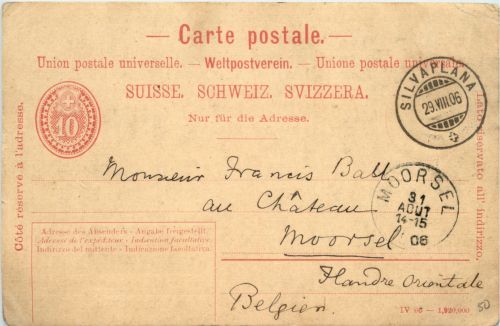 — Carte postale. —
Union postale universelle. — Weltpostverein. — Unione postale universale.
SUISSE. SCHWEIZ. SVIZZERA.
Nur für die Adresse.
10
SILVAPLANA
29.VIII.06
Côté réservé à l'adresse.
Lato riservato all' indirizzo.
Monsieur Francis Ball
au Château
Moorsel
Flandre Orientale
Belgien.
MOORSEL
31
AOUT
14-15
06
Adresse des Absenders - Angabe freigestellt.
Adresse de l'expéditeur - Indication facultative.
Indirizzo del mittente - Indicazione facoltativa.
IV 06 — 1,920,000
50